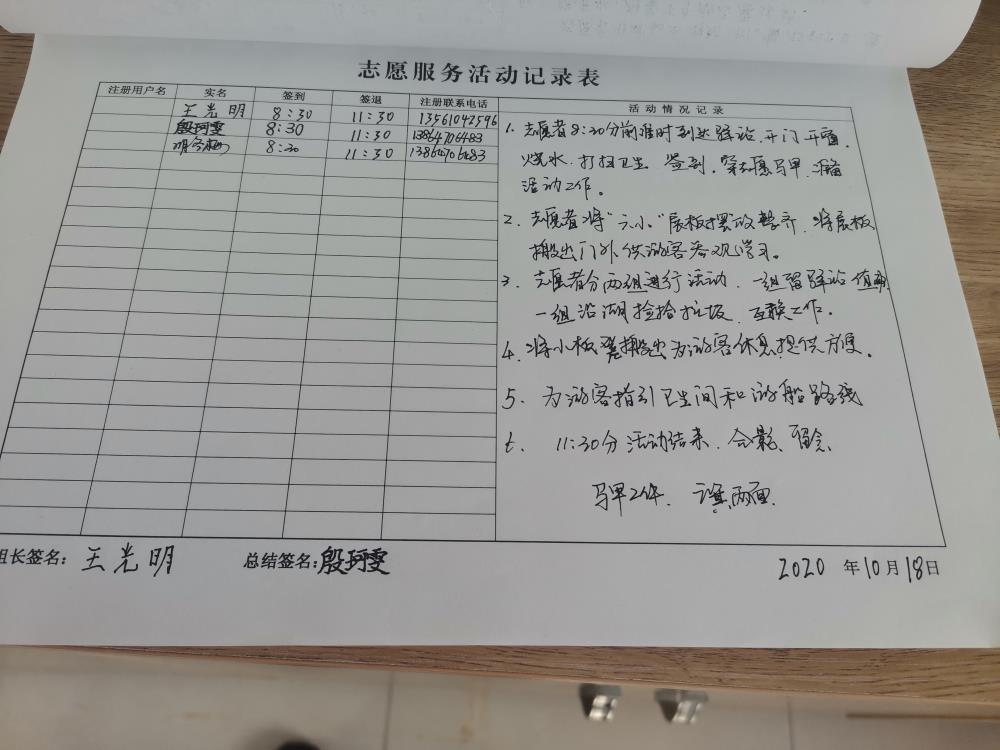 志愿服务活动记录表
注册用户名 实名 签到 签退 注册联系电话 活动情况记录
王光明 8:30 11:30 13561042596
殷珂雯 8:30 11:30 13864706483
8:30 11:30 13864706483
1. 志愿者8:30分前准时到达驿站,开门开窗,
烧水,打扫卫生,签到,穿志愿马甲,准备
活动工作。
2. 志愿者将“六小”展板摆放整齐,将展板
搬出门外供游客参观学习。
3. 志愿者分两组进行活动,一组留驿站值班,
一组沿湖捡拾垃圾,互换工作。
4. 将小板凳搬出为游客休息提供方便。
5. 为游客指引卫生间和游船路线
6. 11:30分活动结束,合影、留念、
马甲2件、 两面
组长签名:王光明 总结签名:殷珂雯 2020年10月18日